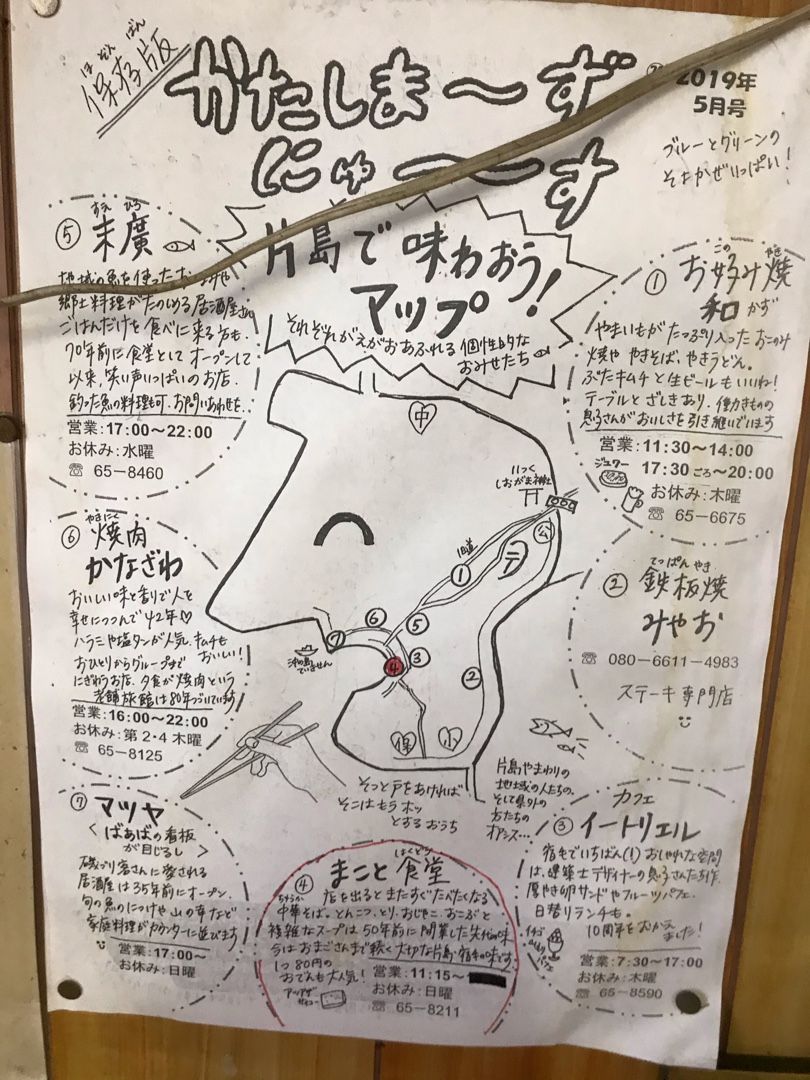 ほぞんばん
保存版
かたしま〜ず
にゅ〜〜す
2019年
5月号
ブルーとグリーンの
そよかぜいっぱい!
片島で味わおう!
マップ
それぞれがえがおあふれる個性的な
おみせたち
⑤ 末廣
すえ ひろ
地域の魚を使った
郷土料理がたのしめる居酒屋さん
ごはんだけを食べに来る方も。
70年前に食堂としてオープンして
以来、笑い声いっぱいのお店。
釣った魚の料理も可。お問いあわせを。
営業:17:00〜22:00
お休み:水曜
☎ 65-8460
① お好み焼
この やき
和 かず
やまいもがたっぷり入ったおこのみ
焼や やきそば、やきうどん。
ぶたキムチと生ビールもいいね!
テーブルとざしきあり。働きものの
息子さんがおいしさを引き継いでいます
営業:11:30〜14:00
ジュワー
17:30ごろ〜20:00
お休み:木曜
☎ 65-6675
⑥ 焼肉
やきにく
かなざわ
おいしい味と香りで人を
幸せにつつんで42年♡
ハラミや塩タンが人気。キムチも
おいしい!
おひとりからグループまで
にぎわうお店。夕食が焼肉という
老舗旅館は80年つづいています
営業:16:00〜22:00
お休み:第2・4 木曜
☎ 65-8125
② 鉄板焼
てっぱん やき
みやお
☎ 080-6611-4983
ステーキ専門店
中
いつく
しおがま神社
旧道
公
テ
①
②
③
④
⑤
⑥
⑦
沖の島
でていません
保
小
そっと戸をあければ
そこはもうホッ
とするおうち
片島やまわりの
地域の人たちの、
そして県外の
方たちの
オアシス…
⑦ マツヤ
ばあばの看板
が目じるし
磯づり客さんに愛される
居酒屋は35年前にオープン。
旬の魚のにつけや山の幸など
家庭料理がカウンターに並びます
営業:17:00〜
お休み:日曜
④ まこと食堂
はくどう
店を出るとまたすぐたべたくなる
ちゅうか
中華そば。とんこつ、とり、おじゃこ、おこぶと
複雑なスープは50年前に開業した先代の味
今はおまごさんまで続く大切な片島・宿毛の味です。
1つ80円の
おでんも大人気!
営業:11:15〜
お休み:日曜
☎ 65-8211
カフェ
③ イートリエル
宿もでいちばん(!)おしゃれな空間
は、建築士デザイナーの息子さんたち作。
厚やき卵サンドやフルーツパフェ
日替りランチも。
10周年をむかえました!
イチゴ
パフェ
営業:7:30〜17:00
お休み:木曜
☎ 65-8590